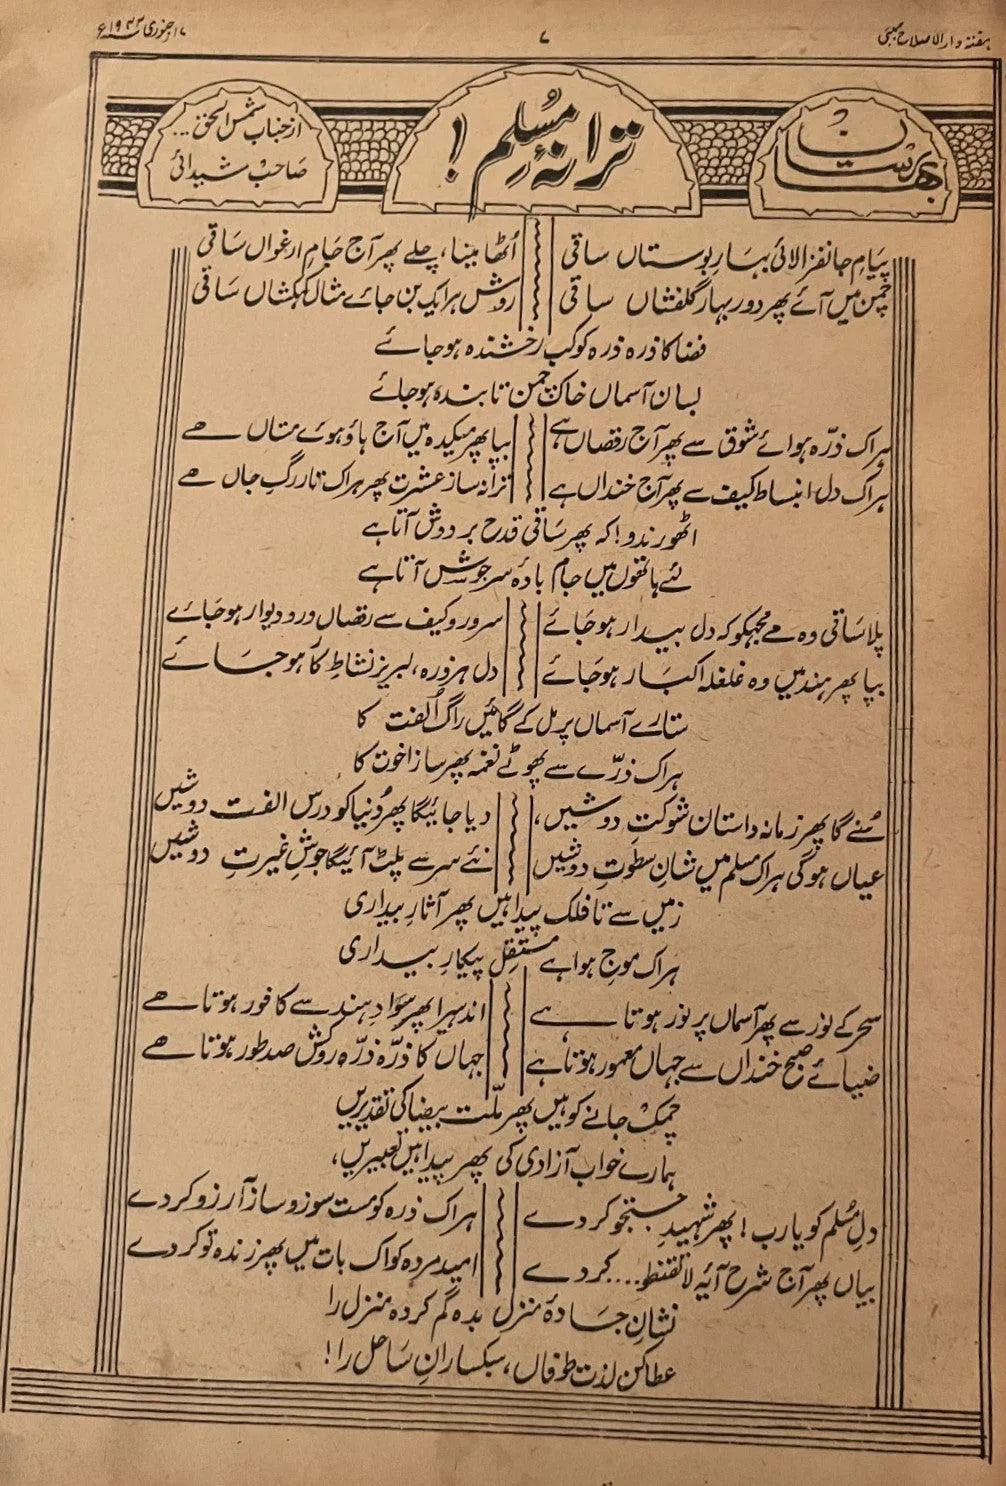 ہفتہ وار الاصلاح بمبئی
۷
۱۷ جنوری ۱۹۴۳ء
بہارستان
ترانۂ مسلم!
از جناب شمس الحق...
صاحب شیدائی
پیامِ جانفزا لائی بہارِ بوستاں ساقی
اُٹھا مینا، چلے پھر آج جامِ ارغواں ساقی
چمن میں آئے پھر دورِ بہارِ گلفشاں ساقی
روش ہر ایک بن جائے مثالِ کہکشاں ساقی
فضا کا ذرہ ذرہ کوکبِ رخشندہ ہوجائے
بسانِ آسماں خاکِ چمن تابندہ ہوجائے
ہر اک ذرّہ ہوائے شوق سے پھر آج رقصاں ہے
بپا پھر میکدہ میں آج ہاؤ ہوئے مستاں ہے
ہر اک دل انبساطِ کیف سے پھر آج خنداں ہے
ترانہ سازِ عشرت پھر ہر اک تارِ رگِ جاں ہے
اٹھو رندو! کہ پھر ساقی قدح بردوش آتا ہے
لئے ہاتھوں میں جام بادۂ سرجوش آتا ہے
پلا ساقی وہ مے مجھکو کہ دل بیدار ہوجائے
سرور و کیف سے رقصاں در و دیوار ہوجائے
بپا پھر ہند میں وہ غلغلہ اکبار ہوجائے
دل ہر ذرہ، لبریز نشاطِ کار ہوجائے
ستارے آسماں پر مل کے گائیں راگ اُلفت کا
ہر اک ذرّے سے پھوٹے نغمہ پھر ساز اخوت کا
سُنے گا پھر زمانہ داستان شوکتِ دوشیں،
دیا جائیگا پھر دُنیا کو درس الفت دوشیں
عیاں ہوگی ہر اک مسلم میں شانِ سطوتِ دوشیں
نئے سر سے پلٹ آئیگا جوشِ غیرتِ دوشیں
زمیں سے تا فلک پیدا ہیں پھر آثارِ بیداری
ہر اک موجِ ہوا ہے مستقل پیکارِ بیداری
سحر کے نور سے پھر آسماں پر نور ہوتا ہے
اندہیرا پھر سوادِ ہند سے کافور ہوتا ہے
ضیائے صبح خنداں سے جہاں معمور ہوتا ہے
جہاں کا ذرّہ ذرّہ روکش صد طور ہوتا ہے
چمک جانے کو ہیں پھر ملّت بیضا کی تقدیریں
ہمارے خواب آزادی کی پھر پیدا ہیں تعبیریں،
دلِ مُسلم کو یارب! پھر شہیدِ جستجو کردے
ہر اک ذرہ کو مست سوز و ساز آرزو کردے
بیاں پھر آج شرح آیۂ لاتقنطو.... کردے
امیدِ مردہ کو اک بات میں پھر زندہ تو کردے
نشانِ جادۂ منزل بدہ گم کردہ منزل را
عطا کن لذت طوفاں، سبکسارانِ ساحل را!